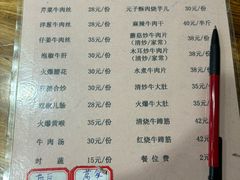 芹菜牛肉丝 28元/份 元子酥肉烧芋儿 30元/份
洋葱牛肉丝 28元/份 麻辣牛肉干 40元/半斤
仔姜牛肉丝 35元/份 蘑菇炒牛肉片 35元/份
(清炒/家常)
泡椒牛肝 30元/份 木耳炒牛肉片 35元/份
(清炒/家常)
火爆腰花 30元/份 水煮牛肉片 35元/份
肝腰合炒 30元/份 清炒牛肉片 35元/份
双椒儿肠 38元/份 火爆牛大肚 35元/份
火爆黄喉 35元/份 清烧牛蹄筋 42元
牛肉汤 30元/份 红烧牛蹄筋 42元
时蔬 15元/份 餐位费 2元